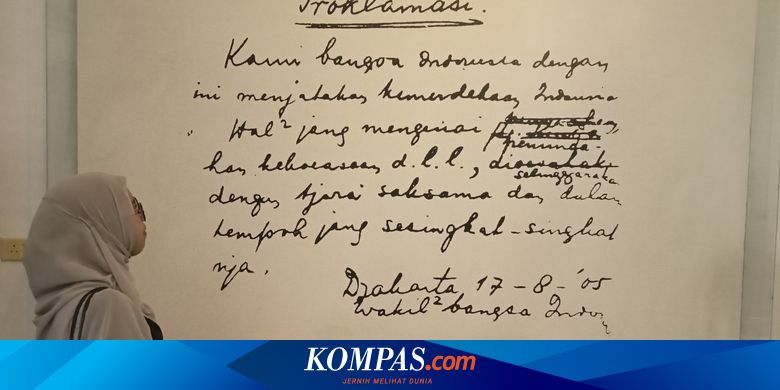 Proklamasi.
Kami bangsa Indonesia dengan
ini menjatakan kemerdekaan Indonesia
Hal² jang mengenai
peminda-
han kekoeasaan d.l.l., diselenggarakan
dengan tjara saksama dan dalam
tempoh jang sesingkat-singkat
nja.
Djakarta, 17-8-'05
Wakil² bangsa Indon
KOMPAS.com
JERNIH MELIHAT DUNIA